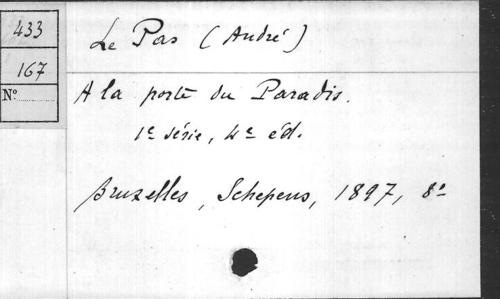 433
167
N°
Le Pas (André)
A la porte du Paradis.
1e série, 4e éd.
Bruxelles, Schepens, 1897, 8°